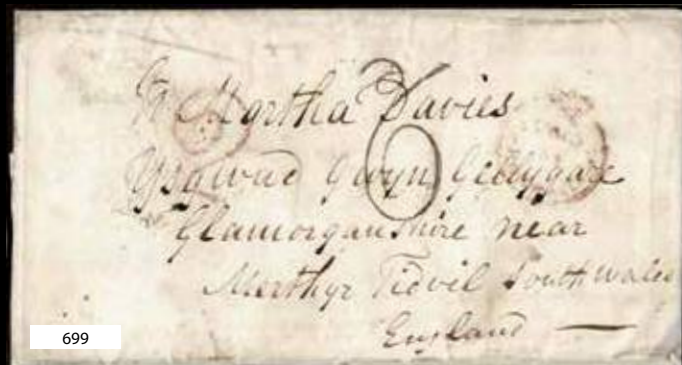 Martha Davies
Gwyn Gellygare
Glamorganshire near
Merthyr Tidvil South Wales
England
699